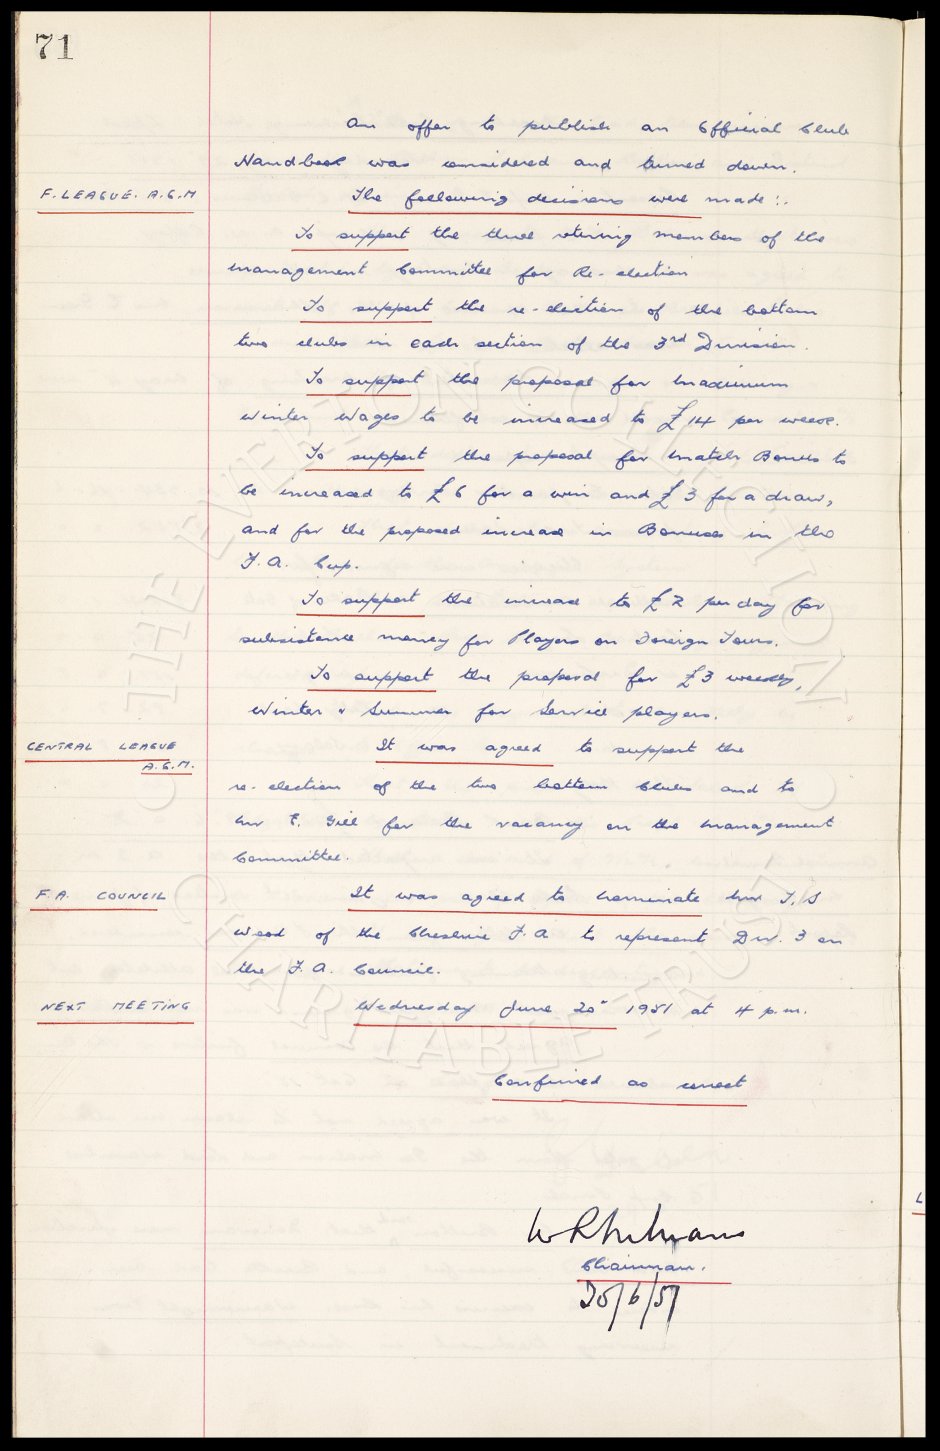 71
An offer to publish an Official Club
Handbook was considered and turned down.
F. LEAGUE. A.G.M
The following decisions were made:.
To support the three retiring members of the
management Committee for Re-election
To support the re-election of the bottom
two clubs in each section of the 3rd Division.
To support the proposal for Maximum
Winter Wages to be increased to £14 per week.
To support the proposal for Match Bonus to
be increased to £6 for a win and £3 for a draw,
and for the proposed increase in Bonuses in the
F.A. Cup.
To support the increase to £2 per day for
subsistance money for Players on Foreign Tours.
To support the proposal for £3 weekly,
Winter & Summer for Service players.
CENTRAL LEAGUE
A.G.M.
It was agreed to support the
re-election of the two bottom Clubs and to
Mr E. Gill for the vacancy on the Management
Committee.
F.A. COUNCIL
It was agreed to nominate Mr J.S
Wood of the Cheshire F.A to represent Div. 3 on
the F.A. Council.
NEXT MEETING
Wednesday June 20" 1951 at 4 p.m.
Confirmed as correct
Chairman.
20/6/51
© THE EVERTON COLLECTION
CHARITABLE TRUST